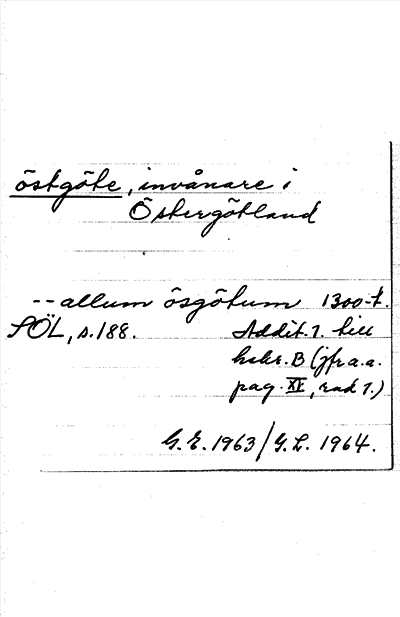 östgöte, invånare i
Östergötland
-- allum ösgötum 1300-t.
SÖL, s. 188. Addit. 1. till
hskr. B (jfr a.a.
pag. XI, rad 1.)
G. E. 1963/G. L. 1964.